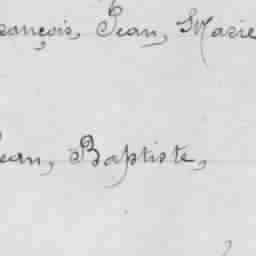 rançois, Jean, Marie
ean, Baptiste,